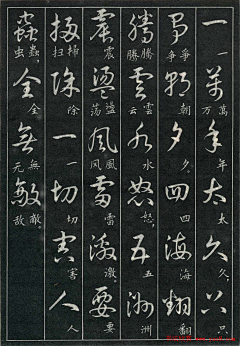 一萬年太久只
一萬万年太久,只
爭朝夕四海翻
爭争朝夕。四海翻
騰雲水怒五洲
騰雲云水怒,五洲
震盪風雷激要
震盪荡風风雷激。要
掃除一切害人
掃扫除一切害人
蟲全無敵
蟲,虫全無敵。敌